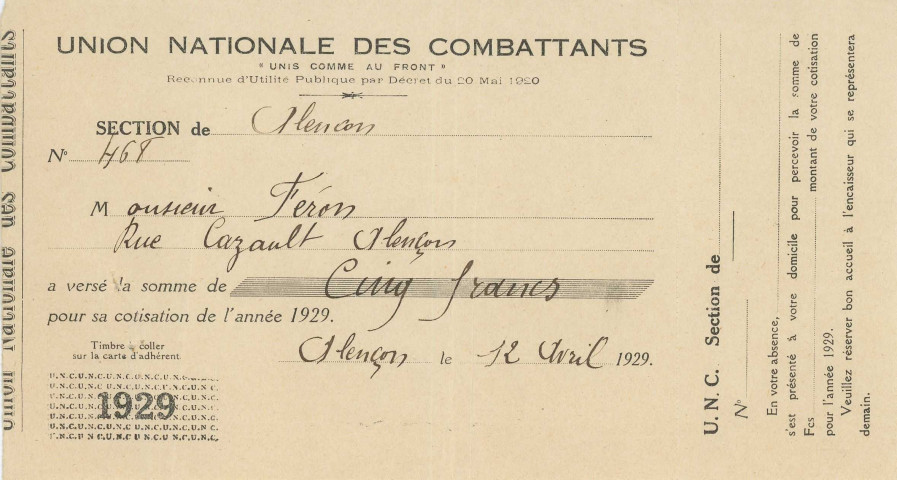 Union Nationale des Combattants
UNION NATIONALE DES COMBATTANTS
" UNIS COMME AU FRONT "
Reconnue d'Utilité Publique par Décret du 20 Mai 1920
SECTION de Alençon
N° 468
Monsieur Féron
Rue Cazault Alençon
a versé la somme de Cinq francs
pour sa cotisation de l'année 1929.
Timbre à coller
sur la carte d'adhérent
Alençon le 12 Avril 1929.
U.N.C.U.N.C.U.N.C.U.N.C.U.N.C.U.N.C.
U.N.C.U.N.C.U.N.C.U.N.C.U.N.C.U.N.C.
1929
U.N.C.U.N.C.U.N.C.U.N.C.U.N.C.U.N.C.
U.N.C.U.N.C.U.N.C.U.N.C.U.N.C.U.N.C.
U.N.C.U.N.C.U.N.C.U.N.C.U.N.C.U.N.C.
U. N. C. Section de
N°
En votre absence,
s'est présenté à votre domicile pour percevoir la somme de
Fcs montant de votre cotisation
pour l'année 1929.
Veuillez réserver bon accueil à l'encaisseur qui se représentera
demain.